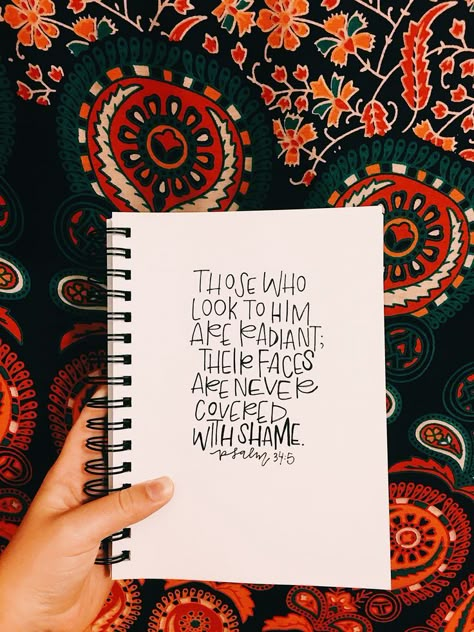 THOSE WHO
LOOK TO HIM
ARE RADIANT;
THEIR FACES
ARE NEVER
COVERED
WITH SHAME.
psalm 34:5